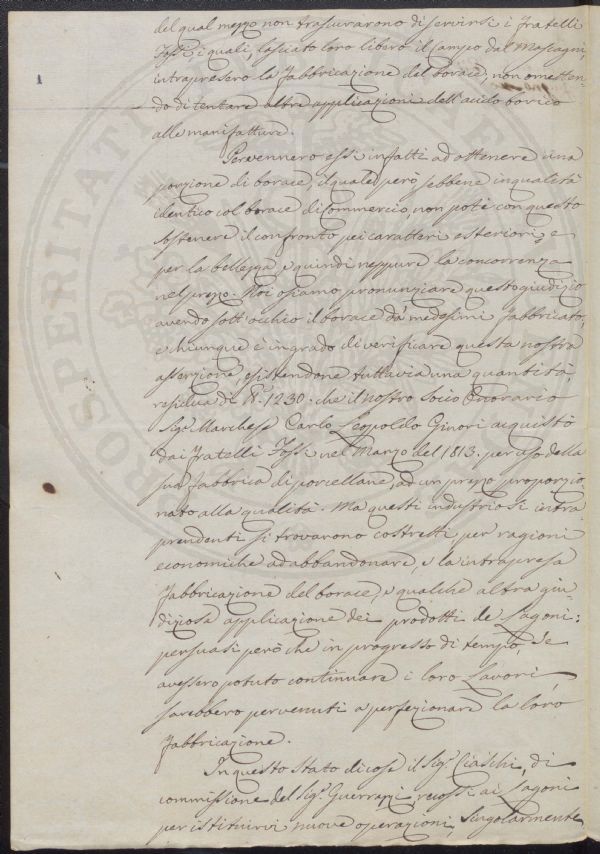 del qual mezzo non trascurarono di servirsi i Fratelli
Fossi, i quali, lasciato loro libero il campo dal Mascagni,
intrapresero la fabbricazione del borace, non ometten-
do di tentare altre applicazioni dell'acido borico
alle manifatture.
Pervennero essi infatti ad ottenere una
porzione di borace, il quale però sebbene in qualità
identico col borace di commercio, non potè con questo
sostenere il confronto pei caratteri esteriori, e
per la bellezza, e quindi neppure la concorrenza
nel prezzo. Noi osiamo pronunziare questo giudizio
avendo sott'occhio il borace da' medesimi fabbricato,
e chiunque è in grado di verificare questa nostra
asserzione, esistendone tuttavia una quantità
residua di 1230. che il nostro Socio Onorario
Sig.e Marchese Carlo Leopoldo Ginori acquistò
dai Fratelli Fossi nel Marzo del 1813. per uso della
sua fabbrica di porcellane, ad un prezzo proporzio-
nato alla qualità. Ma questi industriosi intra-
prendenti si trovarono costretti per ragioni
economiche ad abbandonare, e la intrapresa
fabbricazione del borace, e qualche altra giu-
diziosa applicazione dei prodotti de' Lagoni;
persuasi però che in progresso di tempo, se
avessero potuto continuare i loro lavori,
sarebbero pervenuti a perfezionare la loro
fabbricazione.
In questo stato di cose il Sig.e Ciaschi, di
commissione del Sig.e Guerrazzi, recossi ai Lagoni
per istituirvi nuove operazioni, singolarmente
PROSPERITATI